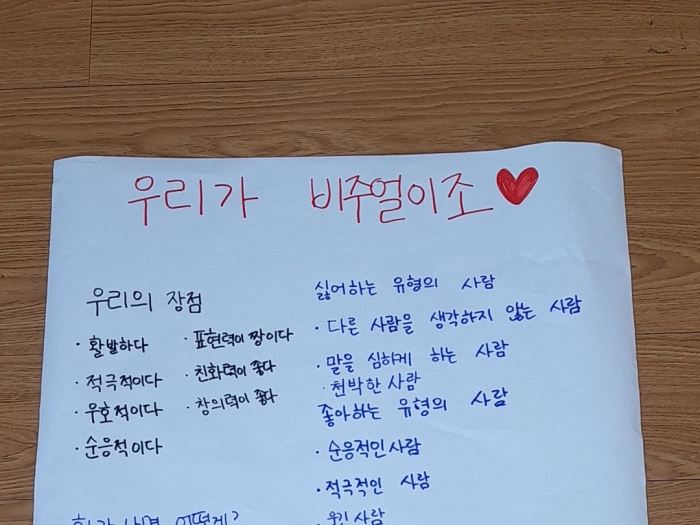 우리가 비주얼이조
우리의 장점
· 활발하다
· 적극적이다
· 우호적이다
· 순응적이다
· 표현력이 짱이다
· 친화력이 좋다
· 창의력이 좋다
싫어하는 유형의 사람
· 다른 사람을 생각하지 않는 사람
· 말을 심하게 하는 사람
· 천박한 사람
좋아하는 유형의 사람
· 순응적인 사람
· 적극적인 사람
· 웃긴 사람
어떻게?